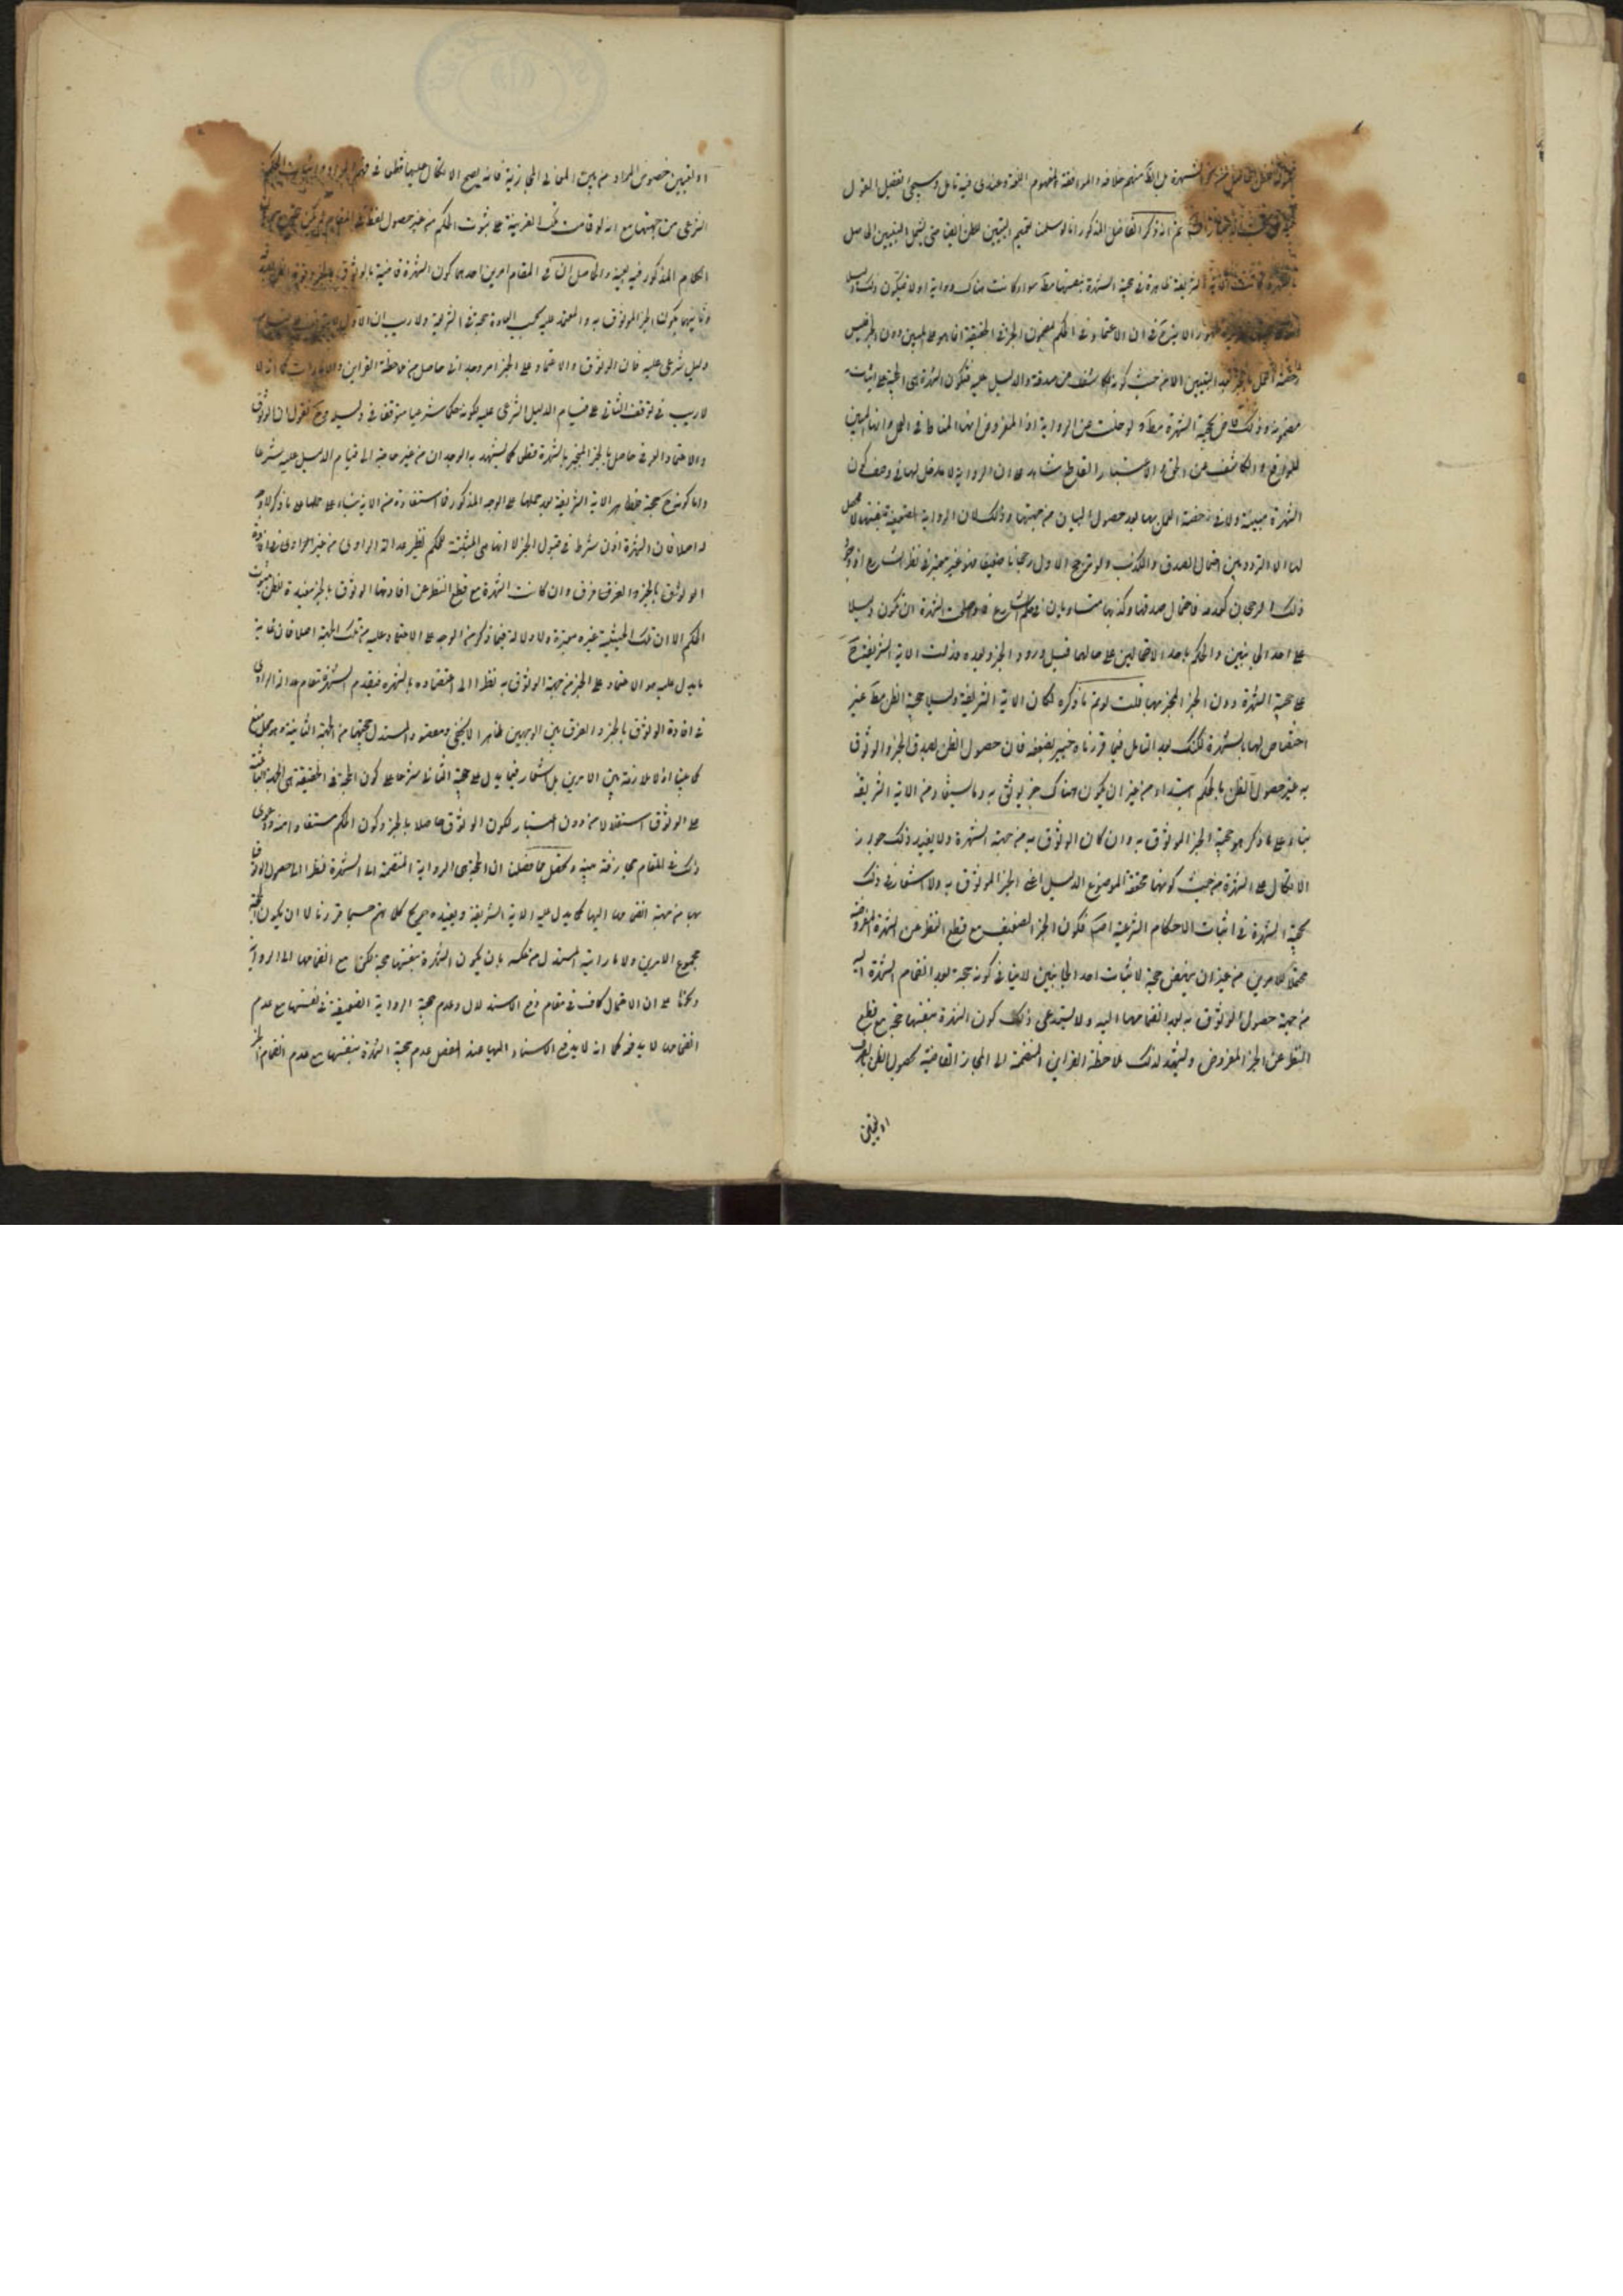 الشهرة بل الظ منهم خلافه والموافقة لمفهوم اللغة وعندى فيه تامل وسيجئ تفصيل القول
ثم انه ذكر الفاضل المذكور انا لو سلمنا تعميم التبيين للظن ايضا حتى يشمل التبيين الحاصل
الشريفة ظاهرة فى حجية الشهرة بنفسها مط سواء كانت هناك رواية اولا فيكون ذلك
ان الاعتماد فى الحكم بمضمون الخبر فى الحقيقة انما هو على المبين دون الخبر ليس
العمل بالخبر بعد التبيين الا من حيث كونه كاشف عن صدقه والدليل عليه فتكون الشهرة هى الحجة على اثبات
مضمونه وذلك قاض بحجية الشهرة مط ولو خلت عن الرواية اذ المفروض انها المناط فى العمل وانها المبين
للواقع والكاشف عن الحق والاعتبار القاطع شاهد على ان الرواية لا مدخل لها فى وصف كون
الشهرة مبينة ولا فى صفة العمل بها بعد حصول البيان من جهتها وذلك لان الرواية الضعيفة بنفسها لا محصل
لها الا التردد بين احتمال الصدق والكذب ولو ترجح الاول رجحانا ضعيفا فهو غير معتبر فى نظر الشارع اذ وجود
ذلك الرجحان كعدمه فاحتمال صدقها وكذبها متساويان فى حكم الشارع فلو صلحت الشهرة ان تكون دليلا
على احد الجانبين والحكم باحد الاحتمالين على حالهما قبل ورود الخبر وبعده فدلت الاية الشريفة ح
على حجية الشهرة دون الخبر المنجبر بها قلت لو تم ما ذكره لكان الاية الشريفة دليلا على حجية الظن مط من غير
اختصاص لها بالشهرة لكنك بعد التامل فيما قررناه خبير بضعفه فان حصول الظن بصدق الخبر والوثوق
به غير حصول الظن بالحكم ابتداء من غير ان يكون هناك خبر يوثق به وما يستفاد من الاية الشريفة
بناء على ما ذكر هو حجية الخبر الموثوق به وان كان الوثوق به من جهة الشهرة ولا يفيد ذلك جواز
الاتكال على الشهرة من حيث كونها محققة لموضوع الدليل اعنى الخبر الموثوق به ولا اشعار فى ذلك
بحجية الشهرة فى اثبات الاحكام الشرعية اصلا فكون الخبر الضعيف مع قطع النظر عن الشهرة المفروضة
محتملا للامرين من غير ان ينهض حجة لاثبات احد الجانبين لا ينافى كونه حجة بعد انضمام الشهرة اليه
من جهة حصول الوثوق به بعد انضمامها اليه ولا يستدعى ذلك كون الشهرة بنفسها حجة مع قطع
النظر عن الخبر المفروض وليشهد لذلك ملاحظة القراين المنضمة الى المجاز القاضية بحصول الظن
او تعيين
او تعيين خصوص المراد من بين المعانى المجازية فانه يصح الاتكال عليها قطعا فى فهم المراد واثبات الحكم
الشرعى من جهتها مع انه لو قامت تلك القرينة على ثبوت الحكم من غير حصول لفظ فى المقام لم يكن
الكلام المذكور فيه بعينه والحاصل ان فى المقام امرين احدهما كون الشهرة قاضية بالوثوق بالخبر
وثانيهما يكون الخبر الموثوق به والمعتمد عليه بحسب العادة حجة فى الشريعة ولا ريب ان الاول لا يتوقف على قيام
دليل شرعى عليه فان الوثوق والاعتماد على الخبر امر وجدانى حاصل من ملاحظة القراين والامارات كما انه لا
لا ريب فى توقف الثانى على قيام الدليل الشرعى عليه لكونه حكما شرعيا متوقفا فى دليله وح نقول ان الوثوق
والاعتماد العرفى حاصل بالخبر المنجبر بالشهرة قطعا كما يشهد به الوجدان من غير حاجة الى قيام الدليل عليه شرعا
واما كونه ح حجة فظاهر الاية الشريفة بعد حملها على الوجه المذكور فما استفادته من الاية بناء على حملها على ما ذكر لا دور
له اصلا فان الشهرة اذن شرط فى قبول الخبر لا انها هى المثبتة للحكم نظير عدالة الراوى
الوثوق بالخبر والفرق فرق وان كانت الشهرة مع قطع النظر عن افادتها الوثوق بالخبر مفيدة لظن بثبوت
الحكم الا ان تلك الحيثية غير معتبرة ولا دلالة فيما ذكر من الوجه على الاعتماد عليه من تلك الجهة اصلا فان غاية
ما يدل عليه هو الاعتماد على الخبر من جهة الوثوق به نظرا الى اعتضاده بالشهرة فيقوم الشهرة مقام عدالة الراوى
فى افادة الوثوق بالخبر والفرق بين الوجهين ظاهر لا يخفى ومقصود المستدل حجيتها من الجهة الثانية وهو محل منع
كما عرفت اذ لا ملازمة بين الامرين بل لا اشعار فيما يدل على حجية الثانى شرعا على كون الحجة فى الحقيقة هى الجهة الباعثة
على الوثوق استقلالا من دون اعتبار لكون الوثوق حاصلا بالخبر وكون الحكم مستفادا منه ودعوى
ذلك فى المقام مجازفة بينة ومحصل ما فصلنا ان الحجة هى الرواية المنضمة الى الشهرة نظرا الى حصول الوثوق
بها من جهة انضمامها اليها كما يدل عليه الاية الشريفة ويفيده صريح كلامهم حسبما قررنا لا ان يكون الحجة
مجموع الامرين ولا ما رامه المستدل من عكسه بان يكون الشهرة بنفسها حجة لكن مع انضمامها الى الرواية
ولا على ان الاحتمال كاف فى مقام دفع الاستدلال وعدم حجية الرواية الضعيفة فى نفسها مع عدم
انضمامها لا يدفعه كما انه لا يدفع الاستناد اليها عند المفصل عدم حجية الشهرة بنفسها مع عدم انضمام الخبر